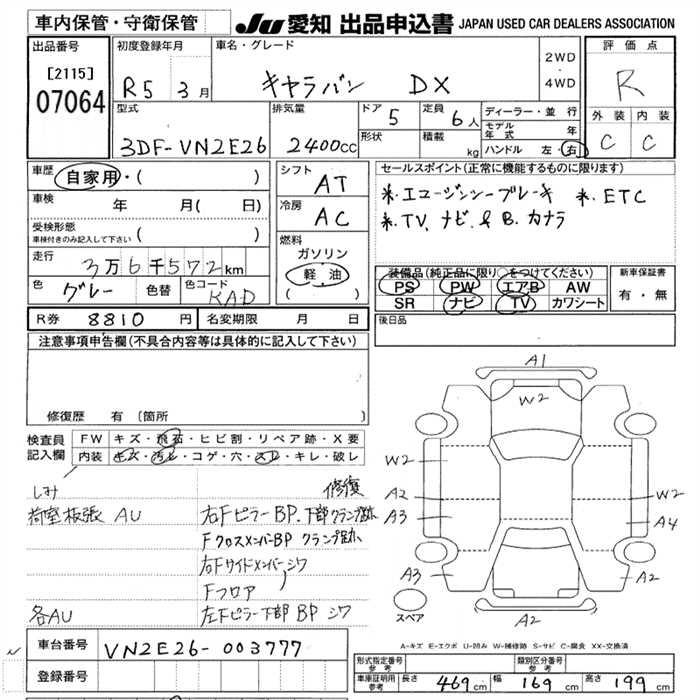 車内保管・守衛保管 JU 愛知 出品申込書 JAPAN USED CAR DEALERS ASSOCIATION
出品番号 [2115] 07064
初度登録年月 R5 3月
車名・グレード キャラバン DX 2WD ・ 4WD
評価点 R
外装 C 内装 C
型式 3DF-VN2E26
排気量 2400cc
ドア 5 形状
定員 6人 積載 kg
ディーラー・並行
モデル年式 年
ハンドル 左・右
車歴 自家用・( )
車検 年 月( 日)
受検形態 ( )
車検付きのみ記入して下さい
走行 3万6千572km
色 グレー 色替 色コード KAD
シフト AT
冷房 AC
燃料 ガソリン 軽油 ( )
セールスポイント(正常に機能するものに限ります)
※.エマージェンシーブレーキ ※.ETC
※.TV.ナビ.&B.カメラ
装備品(純正品に限り○をつけてください)
PS PW エアB AW
SR ナビ TV カワシート
新車保証書 有・無
R券 8810円 名変期限 月 日
後日品
注意事項申告欄(不具合内容等は具体的に記入して下さい)
修復歴 有 [箇所
検査員記入欄
FW キズ・飛石・ヒビ割・リペア跡・X要
内装 キズ・汚レ・コゲ・穴・スレ・キレ・破レ
しみ 修復
荷室板張 AU 右Fピラー BP.下部クランプ跡
FクロスメンバーBP クランプ跡
右Fサイドメンバーシワ
Fフロア
各AU 左Fピラー下部 BP シワ
A1
W2
W2
A2 W2
A3 A4
A3 A2
スペア A2
A-キズ E-エクボ U-凹み W-補修跡 S-サビ C-腐食 XX-交換済
車台番号 VN2E26-003777
登録番号
形式指定番号 参考 類別区分番号 参考
車庫証明用 参考 長さ 469cm 幅 169cm 高さ 199cm